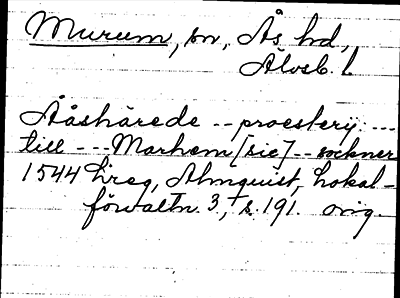 Murum, sn, Ås hd,
Älvsb. l.
Ååshärede -- proesterij ---
till --- Marhem [sic] -- sockner
1544 Lreg, Almquist, Lokal-
förvaltn. 3, s. 191. orig.